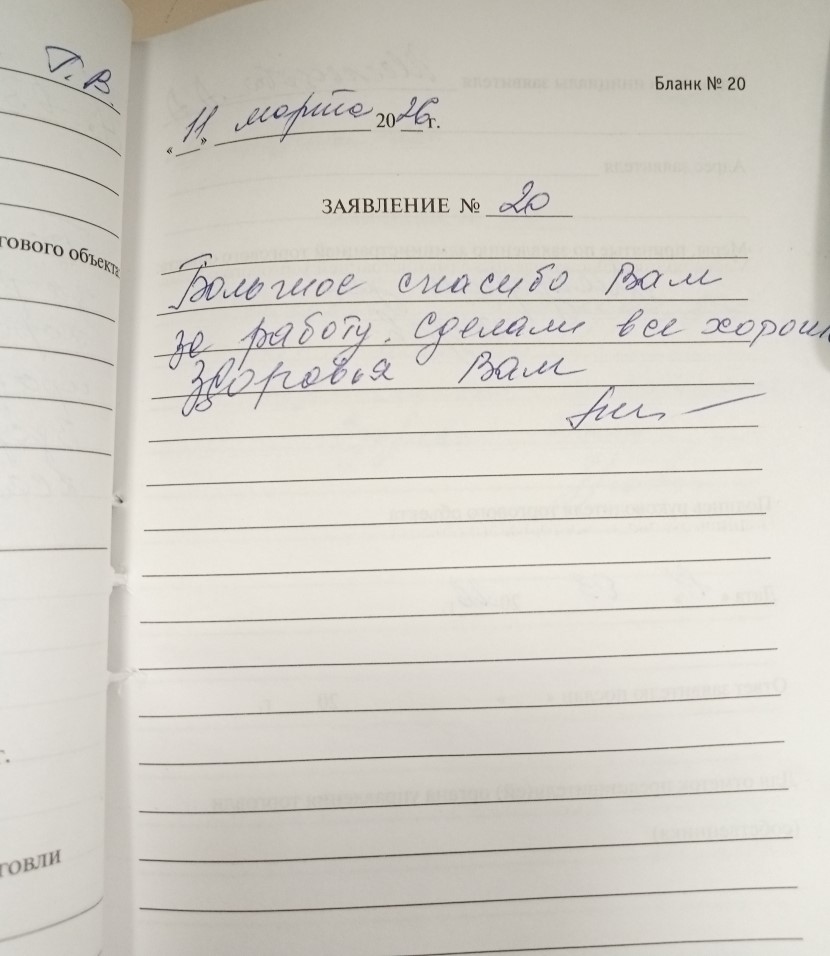 Т.В.
гового объекта
г.
говли
Бланк № 20
«11» марта 2026г.
ЗАЯВЛЕНИЕ № 20
Большое спасибо Вам
за работу. Сделали все хорош
Здоровья Вам